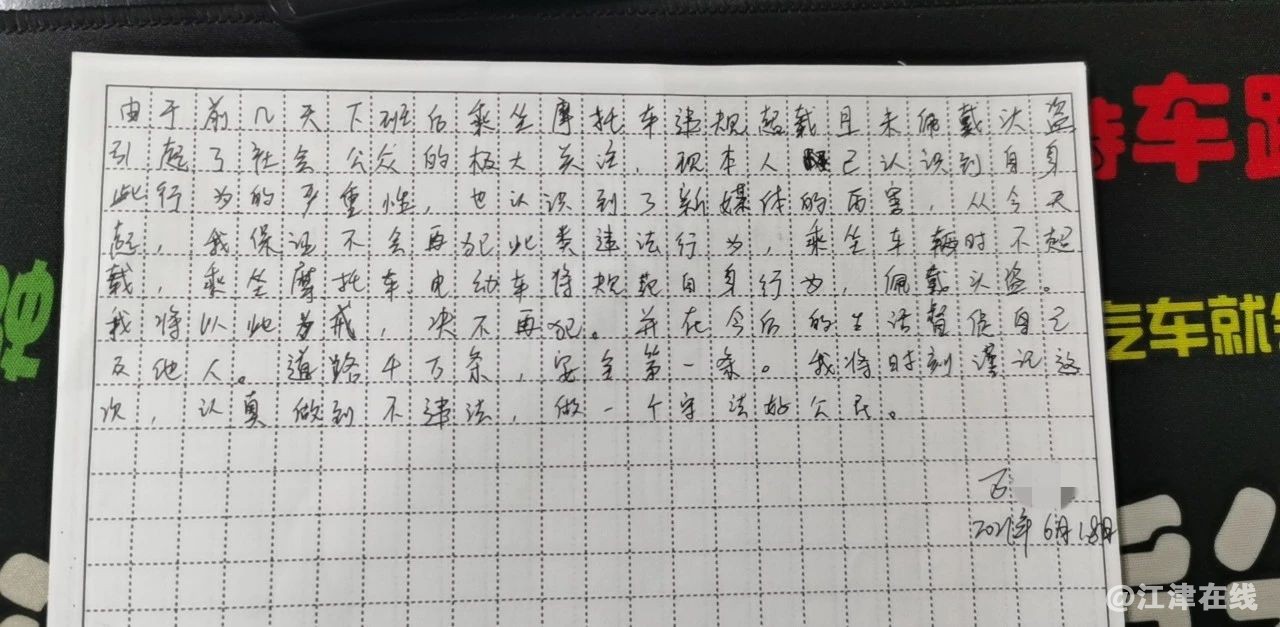 由于前几天下班后乘坐摩托车违规超载且未佩戴头盔
引起了社会公众的极大关注，现本人已认识到自身
此行为的严重性，也认识到了新媒体的厉害，从今天
起，我保证不会再犯此类违法行为，乘坐车辆时不超
载，乘坐摩托车电动车将规范自身行为，佩戴头盔。
我将以此为戒，决不再犯。并在今后的生活督促自己
及他人。道路千万条，安全第一条。我将时刻谨记这
次，认真做到不违法，做一个守法好公民。
2021年6月18日
持车
汽车就
@江津在线